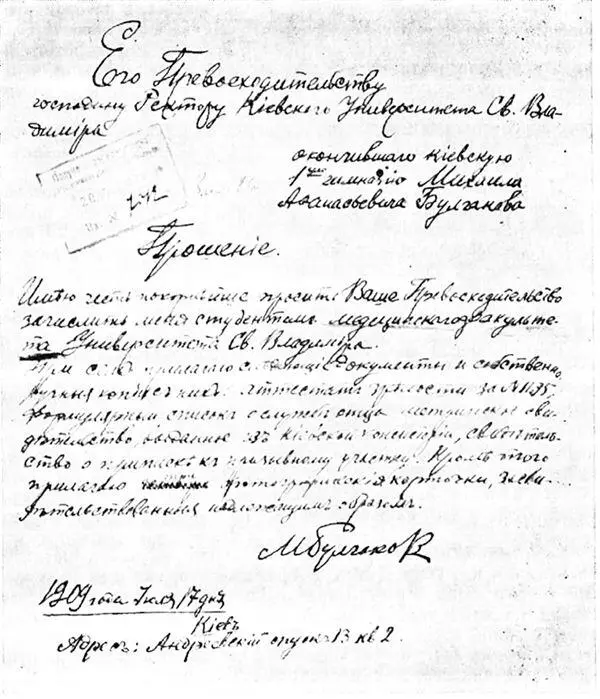 Его Превосходительству
господину Ректору Кіевскаго Университета Св. Вла-
диміра
окончившаго Кіевскую
1ую гимназію Михаила
Афанасьевича Булгакова
2012
Прошеніе.
Имѣю честь покорнѣйше просить Ваше Превосходительство
зачислить меня студентомъ медицинскаго факульте-
та Университета Св. Владиміра.
При семъ прилагаю слѣдующіе документы и собственно
ручныя копіи съ нихъ: Аттестатъ зрѣлости за № 1135
формулярный списокъ о службѣ отца метрическое сви-
дѣтельство, выданное изъ Кіевской консисторіи, свидѣтель-
ство о припискѣ къ призывному участку. Кромѣ этого
прилагаю фотографическія карточки, засви-
дѣтельствованныя надлежащимъ образомъ.
МБулгаковъ
1909 года Іюля 17 дня
Кіевъ
Адресъ: Андреевскій спускъ 13 кв 2.